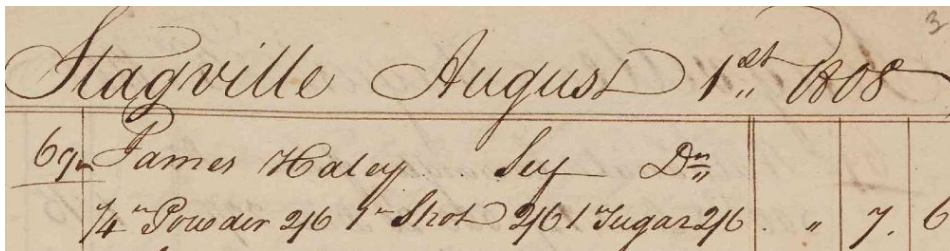 3
Stagville August 1st 1808
69 James Haley Sey Dr
1/4 Powder 2/6 1 Shot 2/6 1 Sugar 2/6 . " 7. 6